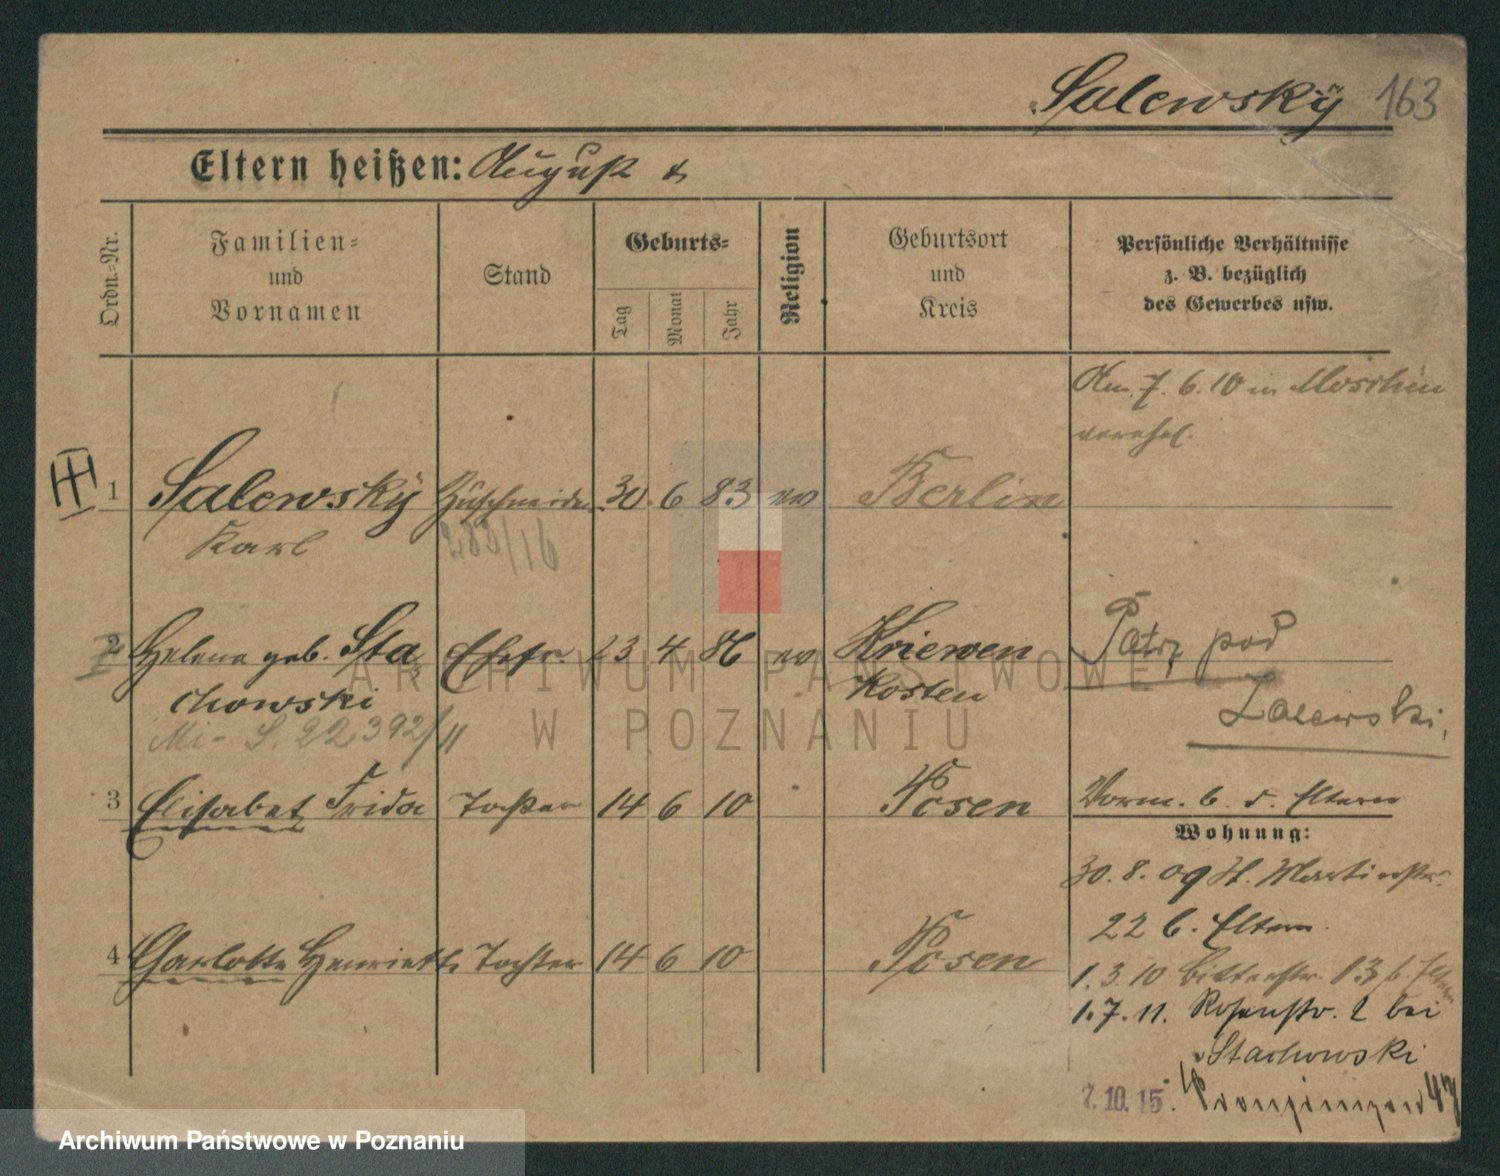 Salewskÿ 163
Eltern heißen: August &
Ordn.-Nr.
Familien-
und
Vornamen
Stand
Geburts-
Tag
Monat
Jahr
Religion
Geburtsort
und
Kreis
Persönliche Verhältnisse
z. B. bezüglich
des Gewerbes usw.
Am 7. 6. 10 in Moschin
verehel.
1 Salewskÿ Zuschneider 30 6 83 ev Berlin
Karl
2 Helene geb. Sta Ehefr. 23 4 86 ev Kriewen Patrz pod
chowski Kosten Zalewski
Mi- S. 22392/11
3 Elisabet Frida Tochter 14 6 10 Posen Vorm. b. d. Eltern
Wohnung:
30. 8. 09 St. Martinstr.
22 b. Eltern.
4 Charlotte Henriette Tochter 14 6 10 Posen
1. 3. 10 13 b. Eltern
1. 7. 11. Rosenstr. 2 bei
Stachowski
7. 10. 15.
ARCHIWUM PAŃSTWOWE
W POZNANIU
Archiwum Państwowe w Poznaniu